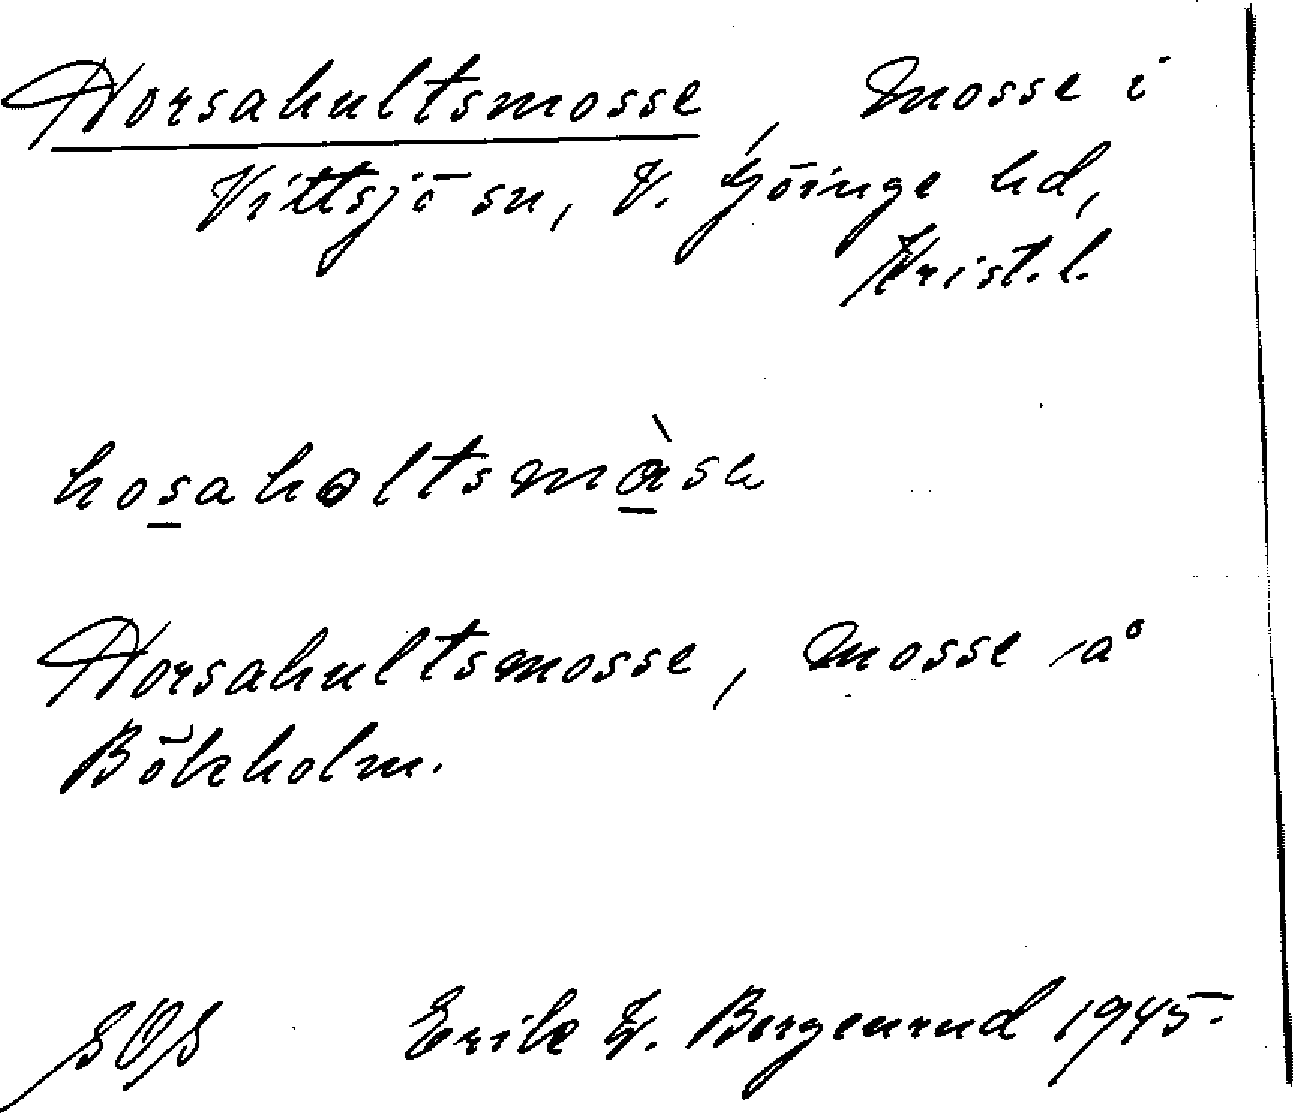 Horsahultsmosse, Mosse i
Vittsjö sn, V. Göinge hd,
Krist. l.
hosahͻltsmàsa
Horsahultsmosse, mosse å
Bökholm.
SOS Erik W. Bergenrud 1945.